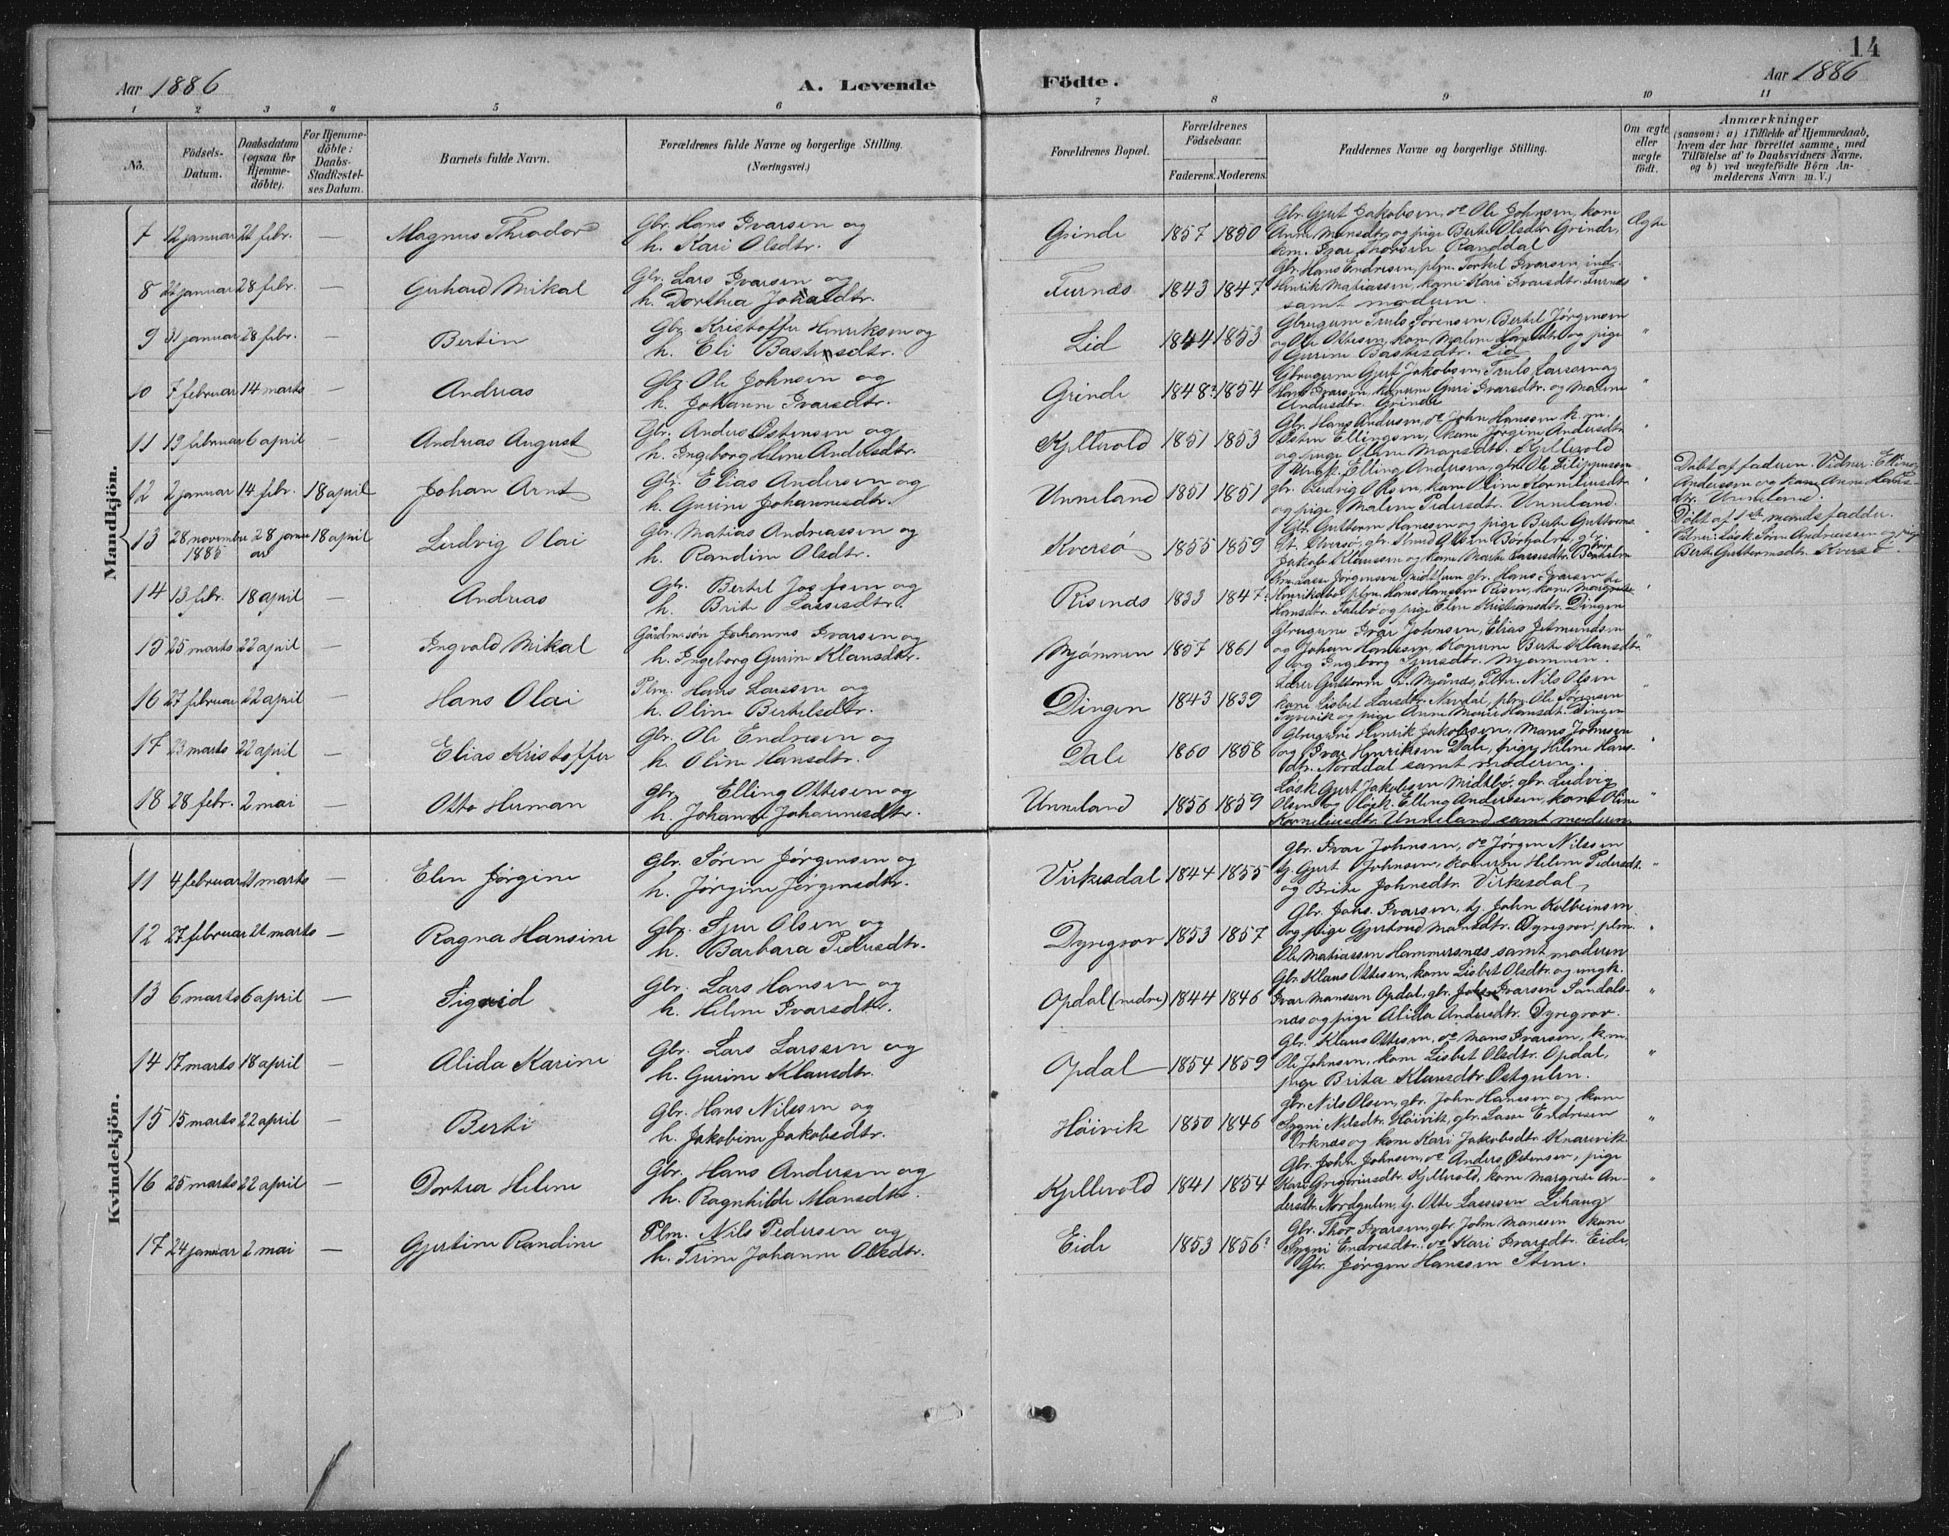 14
Aar 1886 A. Levende Födte. Aar 1886
1 2 3 4 5 6 7 8 9 10 11
No. Födsels-Datum. Daabsdatum (ogsaa for Hjemme-döbte). For Hjemme-döbte: Daabs-Stadfæstel-ses Datum. Barnets fulde Navn. Forældrenes fulde Navne og borgerlige Stilling. (Næringsvei.) Forældrenes Bopæl. Forældrenes Födselsaar. Faderens. Moderens. Faddernes Navne og borgerlige Stilling. Om ægte eller uægte födt. Anmærkninger (saasom: a) i Tilfælde af Hjemmedaab, hvem der har forrettet samme, med Tilföielse af to Daabsvidners Navne, og b) ved uægtefödte Börn An-melderens Navn m. V.)
Mandkjön.
7 12 januar 21 febr. — Magnus Theodor Gbr. Hans Ivarsen og h. Kari Olsdtr. Grinde 1857 1850 Gbr. Gjert Jakobsen, do Ole Johnsen, kone Anne Monsdtr. og pige Berte Olsdtr. Grinde, Ivar Thorsen Randdal Ægte
8 21 januar 28 febr. — Gerhard Mikal Gbr. Lars Ivarsen og h. Dorthea Johnsdtr. Furnæs 1843 1847 Gbr. Hans Endresen, plm. Torkel Ivarsen, ind. Henrik Matiassen, kone Kari Ivarsdtr. Furnæs samt moderen. "
9 31 januar 28 febr. — Bertin Gbr. Kristoffer Henriksen og h. Eli Bastensdtr. Lid 1844 1853 Gbrugerne Truls Sørensen, Bertel Jörgensen og Ole Ottesen, kone Malene Larsdtr. og pige Gurine Bastesdtr. Lid "
10 7 februar 14 marts — Andreas Gbr. Ole Johnsen og h. Johanne Ivarsdtr. Grinde 1848? 1854 Gbrugerne Gjert Jakobsen, Truls Larsen og Hans Ivarsen, konerne Guri Ivarsdtr. og Malene Andersdtr. Grinde "
11 19 februar 6 april — Andreas August Gbr. Anders Østensen og h. Ingeborg Heline Andersdtr. Kjellevold 1851 1853 Gbr. Hans Andersen, do John Hanssen k. m. Østen Ellingsen, kone Jörgine Andersdtr. og pige Oline Mansdtr. Kjellevold "
12 2 januar 14 febr. 18 april Johan Arnt Gbr. Elias Andersen og h. Gurine Johannesdtr. Unneland 1851 1851 Ungk. Elling Andersen, gbr. Ole Filippussen gbr. Ludvig Olsen, kone Oline Korneliusdtr. og pige Malene Pedersdtr. Unneland. " Döbt af faderen. Vidner: Elling Andersen og kone Anne Hans-dtr. Unneland.
13 28 november 1885 28 januar 18 april Ludvig Olai Gbr. Matias Andreassen og h. Randine Olsdtr. Kversö 1855 1859 Gbr. Guttorm Hanssen og pige Berte Guttorms-dt. Kversö, gbr. Knut Olsen Borholm, gbr. Jakob Klaussen og kone Marte Lassesdtr. Borholm " Döbt af Sørn Andreassen og pige Berte Guttormsdtr. Kversö.
14 13 febr. 18 april — Andreas Gbr. Bertel Josefsen og h. Brite Lassesdtr. Risenæs 1833 1847 Lasse Jörgensen, gbr. Hans Ivarsen Henriksbö, plm. Hans Hanssen Risen, kone Margrete Hansdtr. og pige Elen Kristiansdtr. Dingen "
15 25 marts 22 april — Ingvald Mikal Gårdmsøn Johannes Ivarsen og h. Ingeborg Gurine Klausdtr. Mjømnen 1857 1861 Gbrugerne Ivar Johnsen, Elias Jetmundsen og Johan Hanssen, Konerne Berte Klausdtr. og Ingeborg Sjursdtr. Mjømnen. "
16 27 februar 22 april — Hans Olai Plm. Hans Larssen og h. Oline Bertelsdtr. Dingen 1843 1839 Lærer Guttorm L. Mjånes, Plm. Nils Olsen kone Lisbet Larsdtr. Nordal, plm. Ole Sørensen og pige Anne Marie Hansdtr. Dingen "
17 23 marts 22 april — Elias Kristoffer Gbr. Ole Endresen og h. Oline Hansdtr. Dale 1860 1858 Gbrugerne Henrik Jakobsen, Mons Johnsen og Ivar Henriksen Dale, pige Heline Hans-dtr. Norddal samt moderen. "
18 28 febr. 2 mai — Otto Herman Gbr. Elling Ottesen og h. Johanne Johannesdtr. Unneland 1856 1859 Lösk. Gjert Jakobsen Midtbö, gbr. Ludvig Olsen og lösk. Elling Andersen, kone Oline Korneliusdtr. Unneland samt moderen "
Kvindekjön.
11 4 februar 21 marts — Elen Jørgine Gbr. Søren Jørgensen og h. Jørgine Jørgensdtr. Virkesdal 1844 1855 Gbr. Ivar Johnsen, do Jørgen Nilssen tj. Gjert Johnsen, konerne Heline Pedersdt. og Brite Johnsdtr. Virkesdal "
12 27 februar 21 marts — Ragna Hansine Gbr. Sjur Olsen og h. Barbara Pedersdtr. Dyregrov 1853 1857 Gbr. Johs. Ivarsen, tj. John Kolbeinsen og pige Gjertrud Mansdtr. Dyregrov, plm. Ole Matiassen Hammersnæs samt moderen "
13 6 marts 6 april — Sigrid Gbr. Lars Hansen og h. Heline Ivarsdtr. Opdal (nedre) 1844 1846 Gbr. Klaus Ottesen, kone Lisbet Olsdtr. og ungk. Ivar Monssen Opdal, gbr. Ivarsen Sandals-næs og pige Alida Andersdtr. Dyregrov. "
14 17 marts 18 april — Alida Karine Gbr. Lars Larssen og h. Gurine Klausdtr. Opdal 1854 1859 Gbr. Klaus Ottesen, do Mons Ivarsen, k.m. Ole Johnsen, kone Lisbet Olsdtr. Opdal, pige Brita Klausdtr. Østgulen. "
15 15 marts 22 april — Berte Gbr. Hans Nilssen og h. Jakobine Jakobsdtr. Høivik 1850 1846 Gbr. Nils Olsen, gbr. John Hanssen og kone Sygni Nilsdtr. Höivik, gbr. Lasse Endresen Orknæs og kone Kari Jakobsdtr. Knarevik "
16 25 marts 22 april — Dortea Heline Gbr. Hans Andersen og h. Ragnhilde Mansdtr. Kjellevold 1841 1854 Gbr. John Johnsen, do Anders Østensen, pige Kari Gregoriusdtr. Kjellevold, kone Margrete An-dersdtr. Nordgulen, tj. Otte Lassesen Lihaug "
17 24 januar 2 mai — Gjertine Randine Plm. Nils Pedersen og h. Trine Johanne Olsdtr. Eide 1853 1856? Gbr. Thor Ivarsen, gbr. John Monssen kone Sygni Endresdtr. do Kari Ivarsdtr. Eide, Gbr. Jørgen Hanssen Stene.